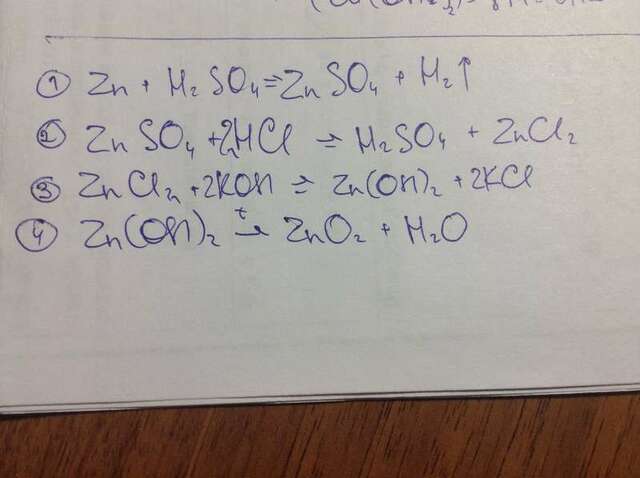 ① Zn + H₂SO₄ = ZnSO₄ + H₂↑
② ZnSO₄ + 2HCl = H₂SO₄ + ZnCl₂
③ ZnCl₂ + 2KOH = Zn(OH)₂ + 2KCl
④ Zn(OH)₂ t→ ZnO₂ + H₂O